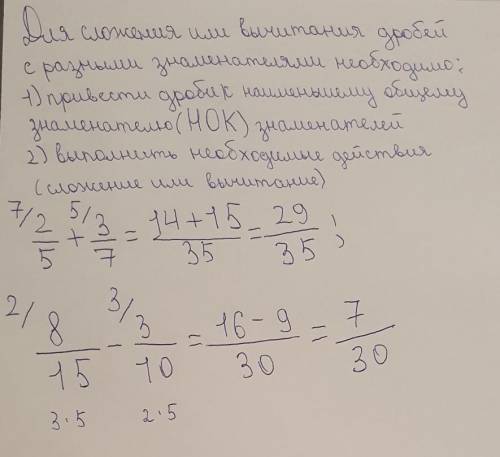 Для сложения или вычитания дробей
с разными знаменателями необходимо:
1) привести дроби к наименьшему общему
знаменателю (НОК) знаменателей
2) выполнить необходимые действия
(сложение или вычитание)
7/ 2/5 + 5/ 3/7 = 14+15/35 = 29/35 ;
2/ 8/15 - 3/ 3/10 = 16-9/30 = 7/30
3·5 2·5